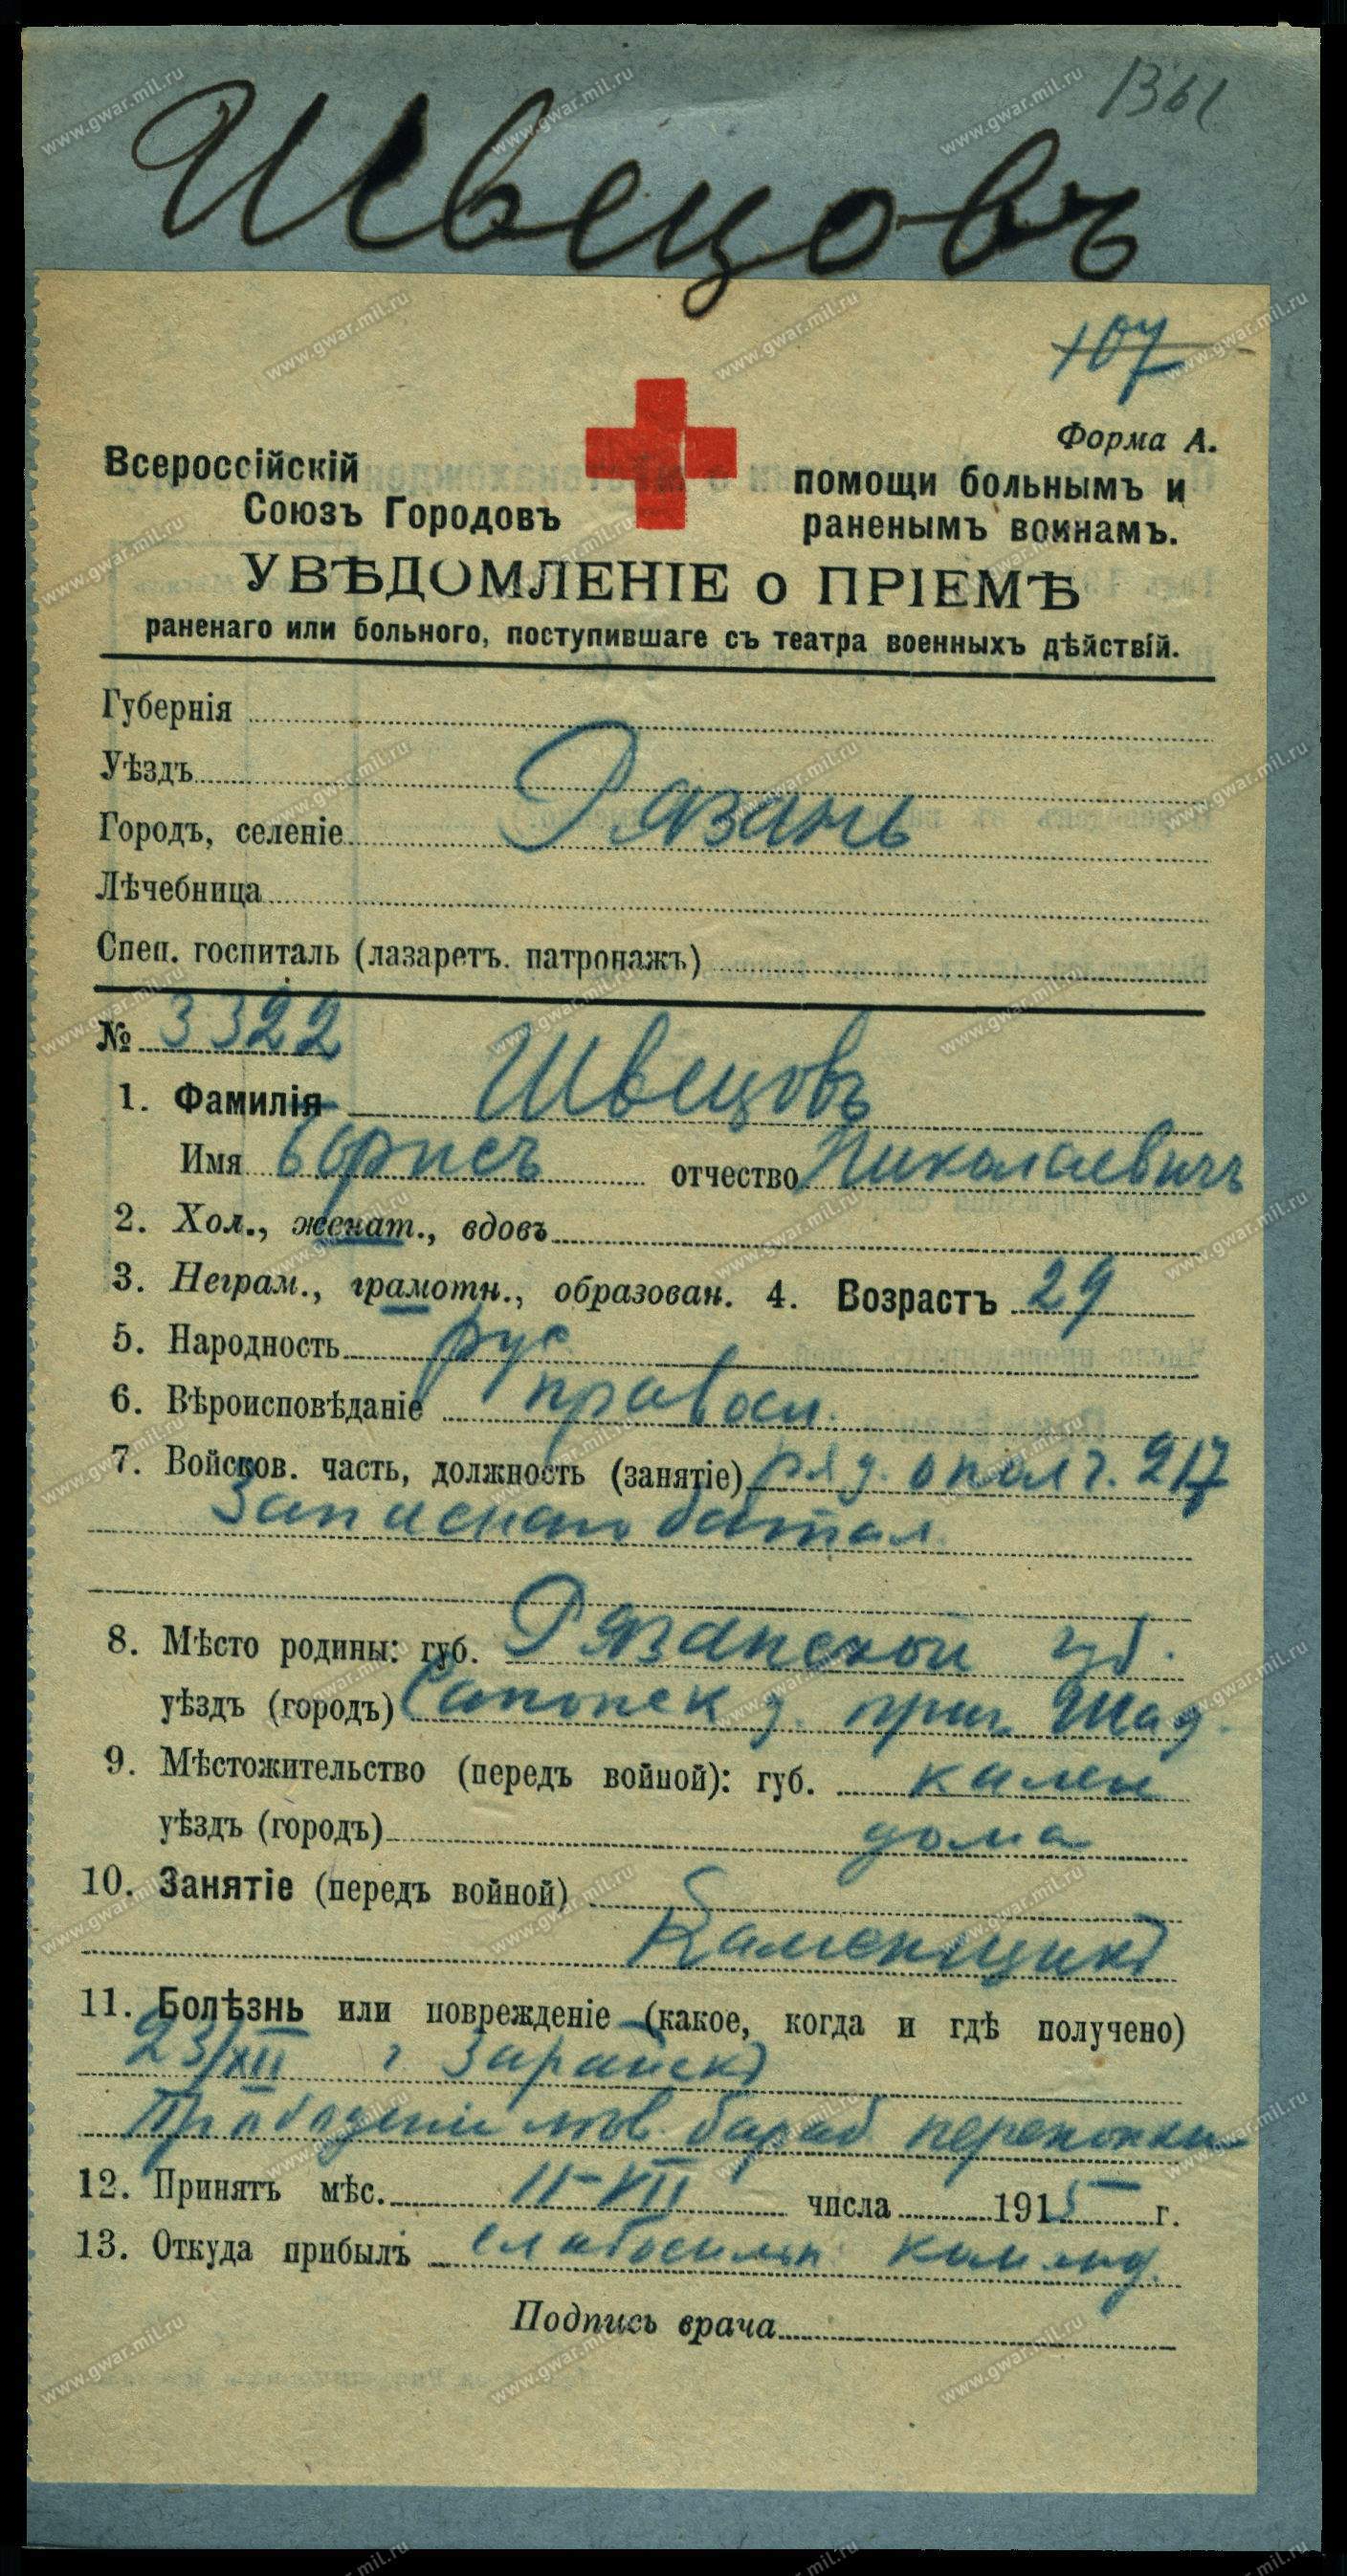 1361
Швецовъ
107
Форма А.
Всероссійскій
Союзъ Городовъ
помощи больнымъ и
раненымъ воинамъ.
УВѢДОМЛЕНІЕ о ПРІЕМѢ
раненаго или больного, поступившаге съ театра военныхъ дѣйствій.
Губернія
Уѣздъ
Городъ, селеніе Рязань
Лѣчебница
Спец. госпиталь (лазаретъ. патронажъ)
№ 3322
1. Фамилія Швецовъ
Имя Борисъ отчество Николаевичъ
2. Хол., женат., вдовъ
3. Неграм., грамотн., образован. 4. Возрастъ 29
5. Народность рус
6. Вѣроисповѣданіе правосл.
7. Войсков. часть, должность (занятіе) ряд. ополч. 217
Запасная батал.
8. Мѣсто родины: губ. Рязанской губ.
уѣздъ (городъ)
9. Мѣстожительство (передъ войной): губ.
уѣздъ (городъ) дома
10. Занятіе (передъ войной)
Каменщикъ
11. Болѣзнь или поврежденіе (какое, когда и гдѣ получено)
23/XII г Зарайскъ
Прободеніе лѣв. бараб. перепонки
12. Принятъ мѣс. 11-VII числа 1915 г.
13. Откуда прибылъ слабосильн. команд.
Подпись врача